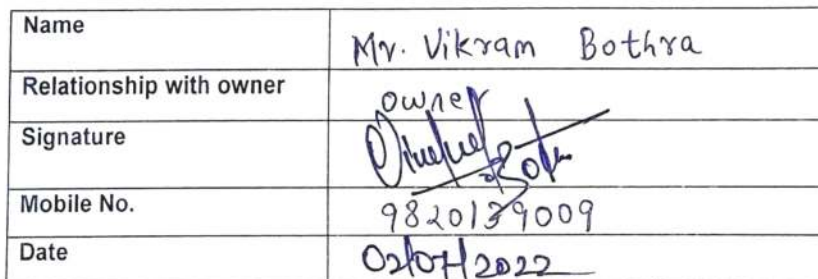 Name Mr. Vikram Bothra
Relationship with owner owner
Signature
Mobile No. 9820139009
Date 02/07/2022